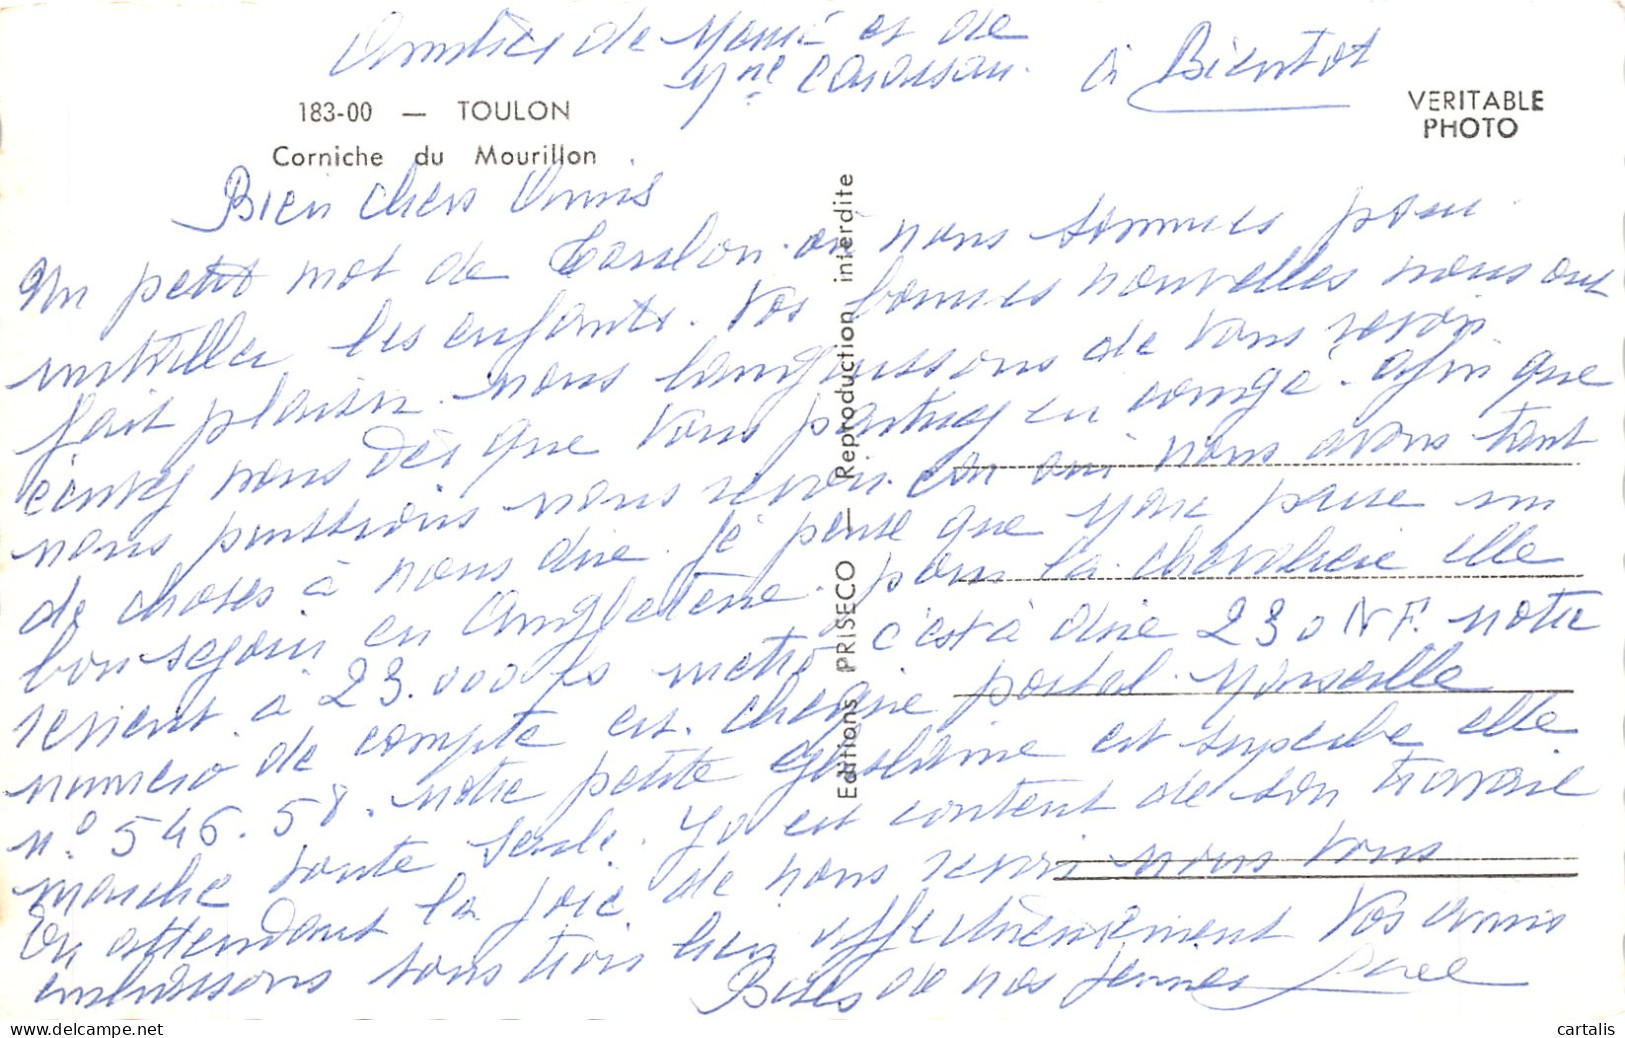 Amitiés de Mamé et de
Mme à Bientot
183-00 — TOULON
Corniche du Mourillon
VERITABLE
PHOTO
Bien chers Amis
Un petit mot de Toulon où nous sommes pour
les enfants. Vos bonnes nouvelles nous ont
fait plaisir. nous languissons de vous revoir
écrivez nous dès que vous partirez en congé. afin que
nous puissions nous revoir. car oui nous avons tant
de choses à nous dire. je pense que passe un
bon séjour en Angleterre. pour la chevalière elle
revient à 23.000 fs métro c'est à dire 230 NF. notre
numéro de compte est. chèque postal. Marseille
n° 546.58. notre petite Ghislaine est superbe elle
marche toute seule. est content de son travail
En attendant la joie de nous revoir nous vous
embrassons tous trois bien affectueusement Vos amis
Bises de nos jeunes
Editions PRISECO — Reproduction interdite
cartalis